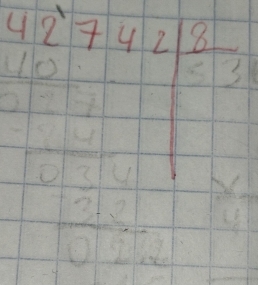 42742 8
40 53
027
24
034
32
022